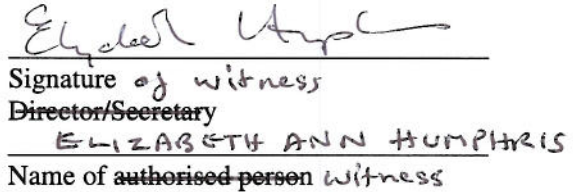 Signature of witness
Director/Secretary
ELIZABETH ANN HUMPHRIS
Name of authorised person witness